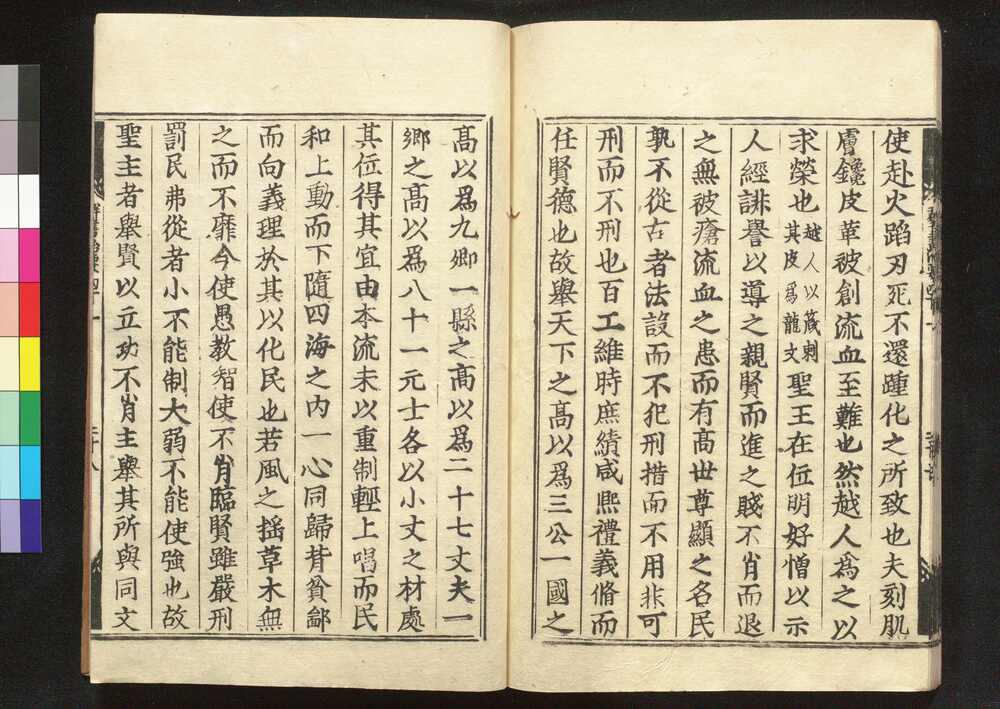 使赴火蹈刃死不還踵化之所致也夫刻肌
膚鑱皮革被創流血至難也然越人爲之以
求榮也越人以箴刺其皮爲龍文聖王在位明好憎以示
人經誹譽以導之親賢而進之賤不肖而退
之無被瘡流血之患而有高世尊顯之名民
孰不從古者法設而不犯刑措而不用非可
刑而不刑也百工維時庶績咸熙禮義脩而
任賢德也故舉天下之高以爲三公一國之
高以爲九卿一縣之高以爲二十七丈夫一
鄉之高以爲八十一元士各以小丈之材處
其位得其宜由本流未以重制輕上唱而民
和上動而下隨四海之内一心同歸背貧鄙
而向義理於其以化民也若風之搖草木無
之而不靡今使愚教智使不肖臨賢雖嚴刑
罰民弗從者小不能制大弱不能使強也故
聖主者舉賢以立功不肖主舉其所與同文
群書治要四十一
二十八